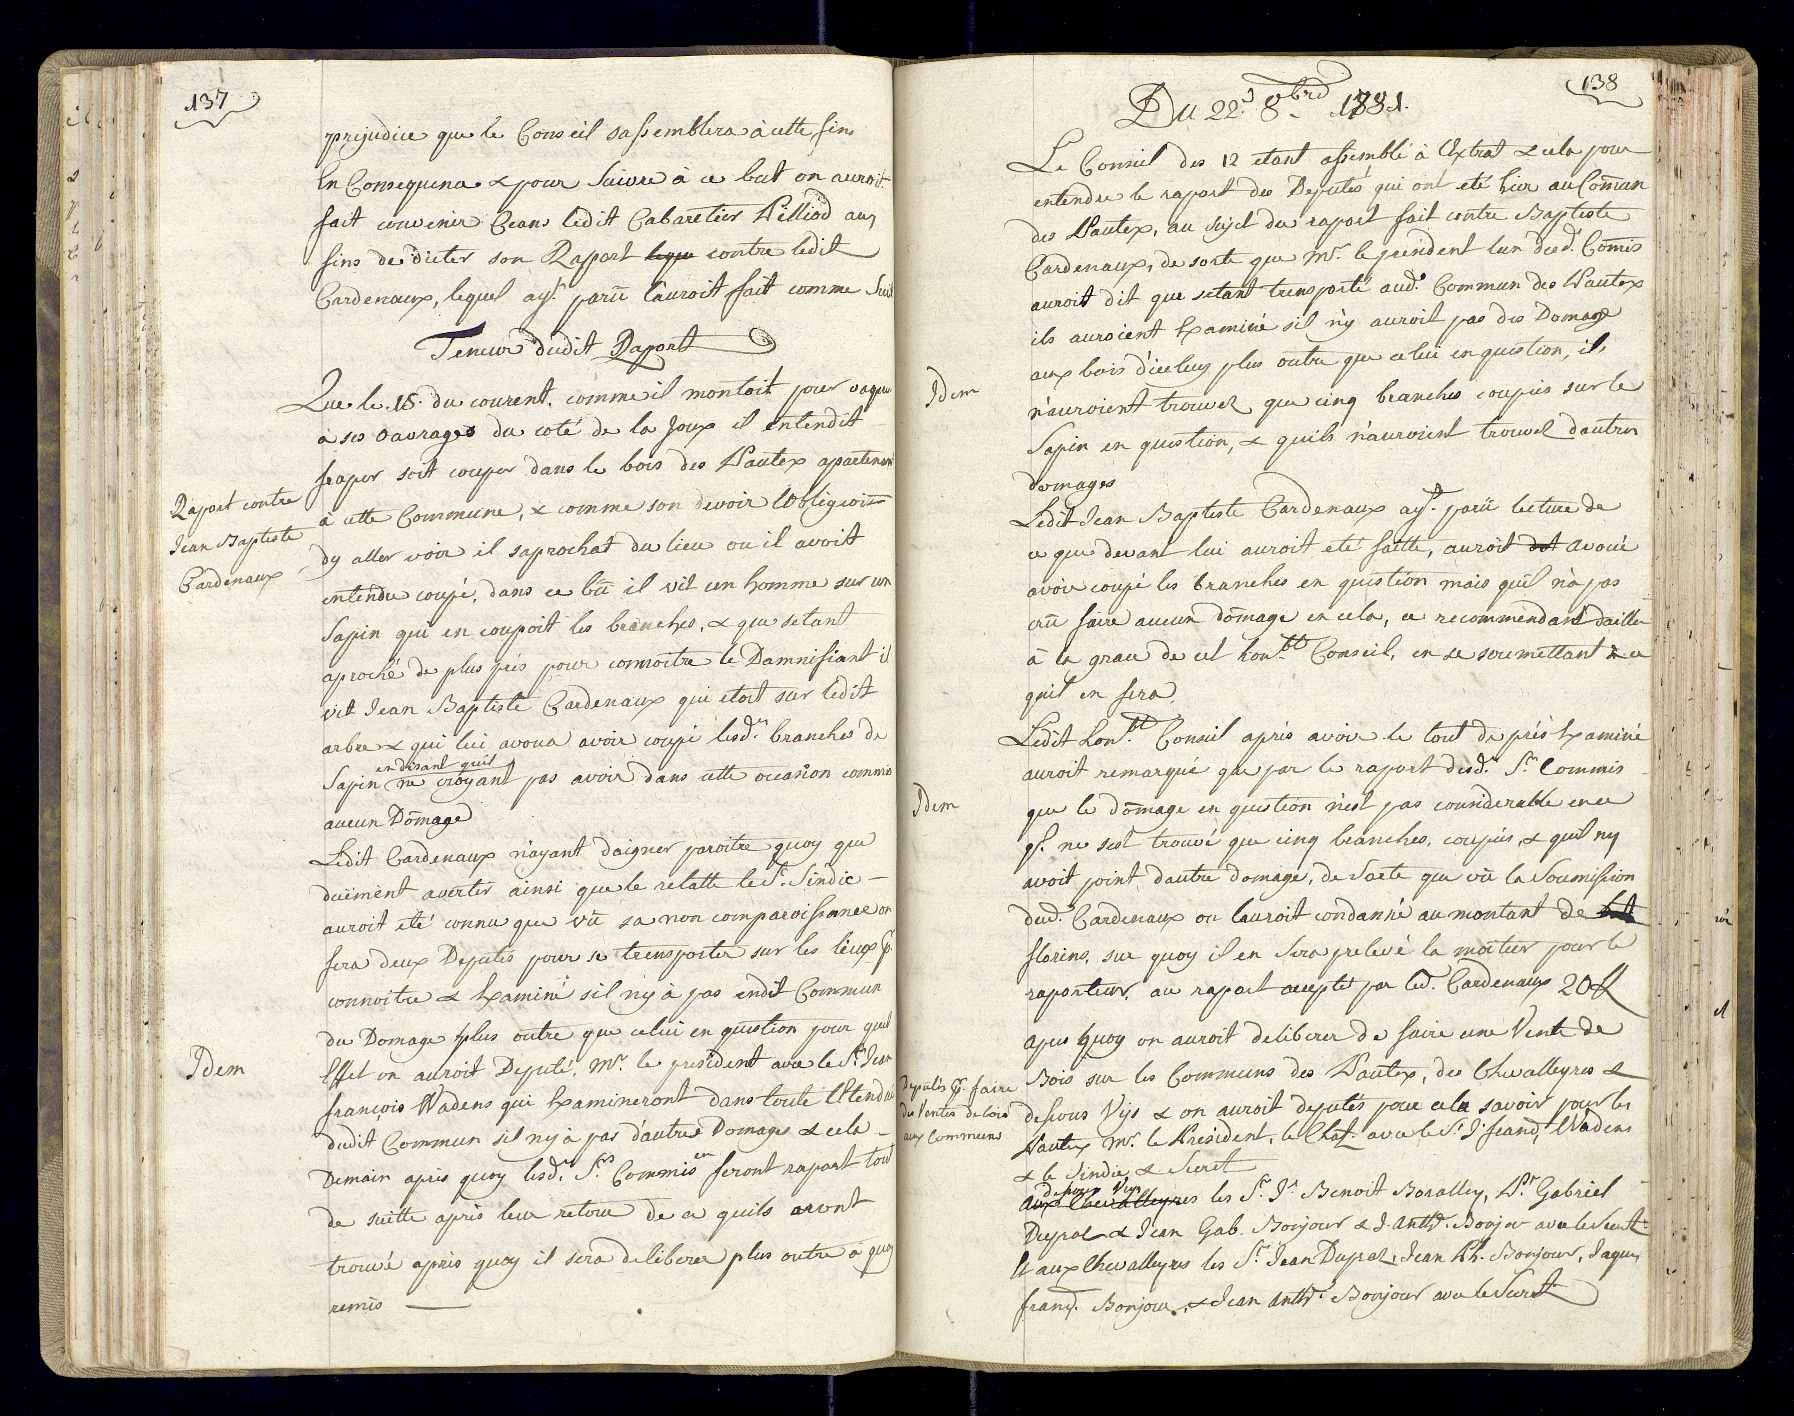 137
prejudice que le Conseil sassemblera à cette fin
En Consequence & pour Suivre à ce but on auroit
fait convenir Ceans ledit Cabaretier Pilliod aux
fins de dicter son Raport contre ledit
Cardenaux, lequel ayt. parü l'auroit fait comme Suit
Teneur dudit Raport
Que le 15. du courent, comme il montoit pour vaquer
à ses ouvrages du coté de la Joux il entendit
fraper soit couper dans le bois des Pautex apartenent
Raport contre
Jean Baptiste
Cardenaux
à cette Commune, & comme son devoir l'obligeoit
dy aller voir il saprochat du lieu ou il avoit
entendu coupé, dans ce bü il vit un homme sur un
Sapin qui en coupoit les branches, & que setant
aproché de plus près pour connoitre le Damnifiant il
vit Jean Baptiste Cardenaux qui etoit sur ledit
arbre & qui lui avoua avoir coupé lesd. branches de
en disant quil
Sapin ne croyant pas avoir dans cette occasion commis
aucun Domage
Ledit Cardenaux n'ayant daigner paroitre quoy que
duëment avertir ainsi que le relatte le Sr. Sindic
auroit eté connu que vü sa non comparoissance on
fera deux Deputés pour se transporter sur les lieux pr.
connoitre & Examiné sil n'y à pas endit Commun
du Domage plus outre que celui en question pour quel
Idem
Effet on auroit Deputé, Mr. le president avec le Sr. Jean
françois Wadens qui Examineront dans toute l'Etendue
dudit Commun sil n'y à pas d'autres Domages & cela
Demain après quoy lesd. Srs. Commis en feront raport tout
de suitte après leur retour de ce quils auront
trouvé après quoy il sera deliberer plus outre à quoy
remis
138
Du 22e. 8bre. 1781.
Le Conseil des 12 etant assemblé à l'Extrat & cela pour
entendre le raport des Deputés qui ont eté hier au Comun
des Pautex, au sujet du raport fait contre Baptiste
Cardenaux, de sorte que Mr. le president l'un desd. Comis
auroit dit que setant transporté aud. Commun des Pautex
ils auroient Examiné sil n'y auroit pas des Domage
Idem
aux bois d'iceluy plus outre que celui en question, ils
n'auroient trouvez que cinq branches coupées sur le
Sapin en question, & quils n'auroient trouvez dautres
domages
Ledit Jean Baptiste Cardenaux ayt. parü lecture de
ce que devant lui auroit eté faitte, auroit dit avoué
avoir coupé les branches en question mais quil n'a pas
crü faire aucun domage en cela, ce recommendant dailleur
à la grace de cet honble. Conseil, en se soumettant à ce
quil en fera
Ledit honble. Conseil après avoir le tout de près Examiné
auroit remarqué que par le raport desd. Srs. Commis
Idem
que le domage en question n'est pas considerable en ce
qt. ne sest trouvé que cinq branches, coupées, & quil ny
avoit point dautre domage, de Sorte que vü la Soumission
dud. Cardenaux on l'auroit condanné au montant de
florins, sur quoy il en sera prelevé la moitier pour le
raporteur, au raport accepté par led. Cardenaux 20 fl
Apres quoy on auroit deliberer de faire une Vente de
Deputés pr. faire
des Ventes de bois
aux Communs
Bois sur les Communs des Pautex, des Chevalleyres &
dessous Vijs & on auroit deputés pour cela savoir pour les
Pautex Mr. le Président, le Chat. avec le Sr. J: françs. Wadens
& le Sindic & Secret
dessous Vijs
aux Chevalleyres les Sr. Jn. Benoit Bonalley, Pr. Gabriel
Dupraz & Jean Gab. Bonjour & J. Anthe. Bonjour avec le Secret.
Et aux Chevalleyres les Sr. Jean Dupraz, Jean Ph. Bonjour, Jaque,
franç. Bonjour, & Jean Anthe. Bonjour avec le Secret